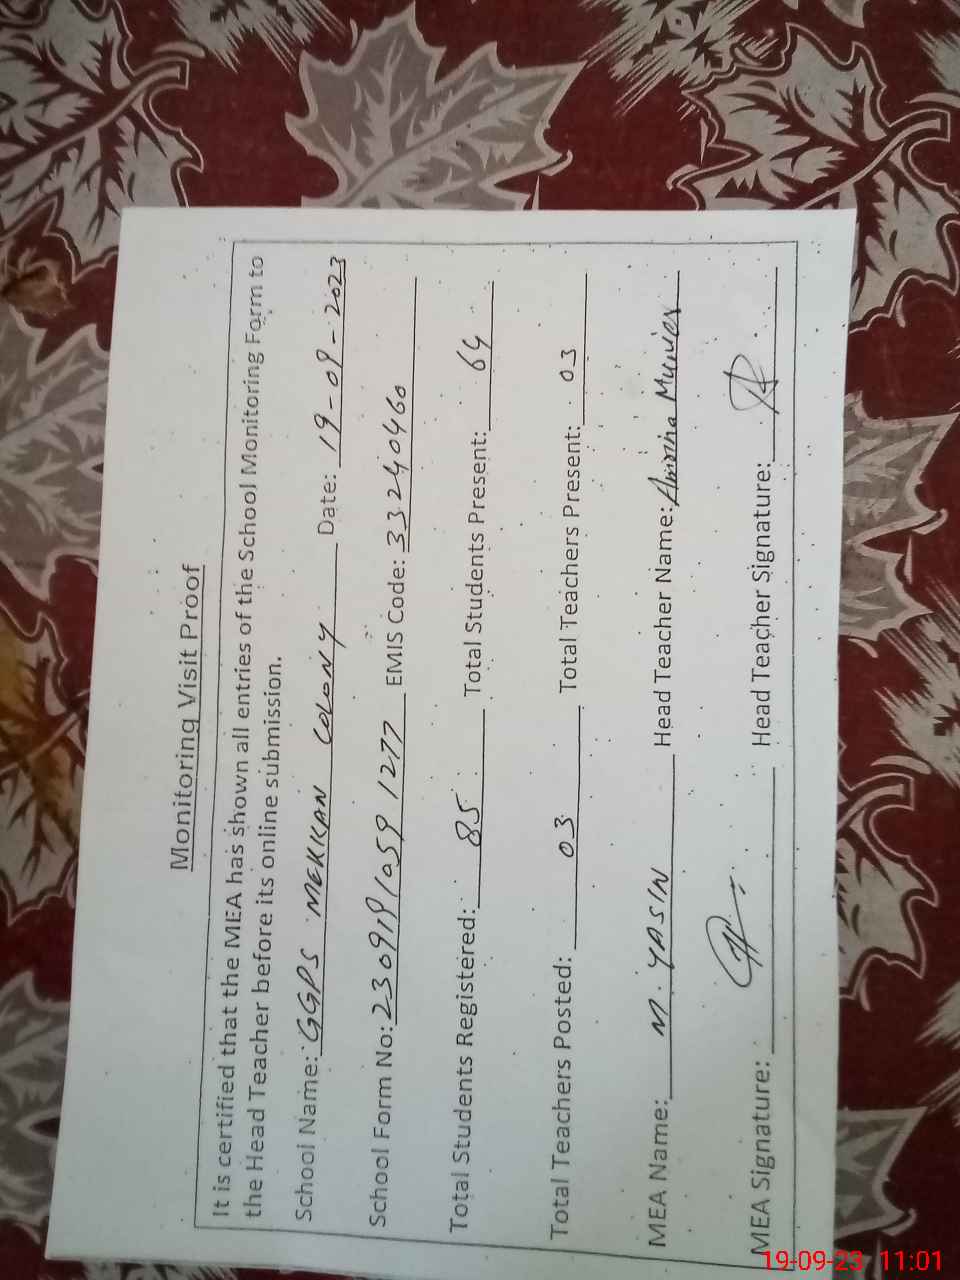 Monitoring Visit Proof
It is certified that the MEA has shown all entries of the School Monitoring Form to
the Head Teacher before its online submission.
School Name: GGPS MEKKAN COLONY Date: 19-09-2023
School Form No: 230919 1059 1277 EMIS Code: 33240460
Total Students Registered: 85 Total Students Present: 64
Total Teachers Posted: 03 Total Teachers Present: 03
MEA Name: M. YASIN Head Teacher Name: Amina Munir
MEA Signature: Head Teacher Signature:
19-09-23 11:01